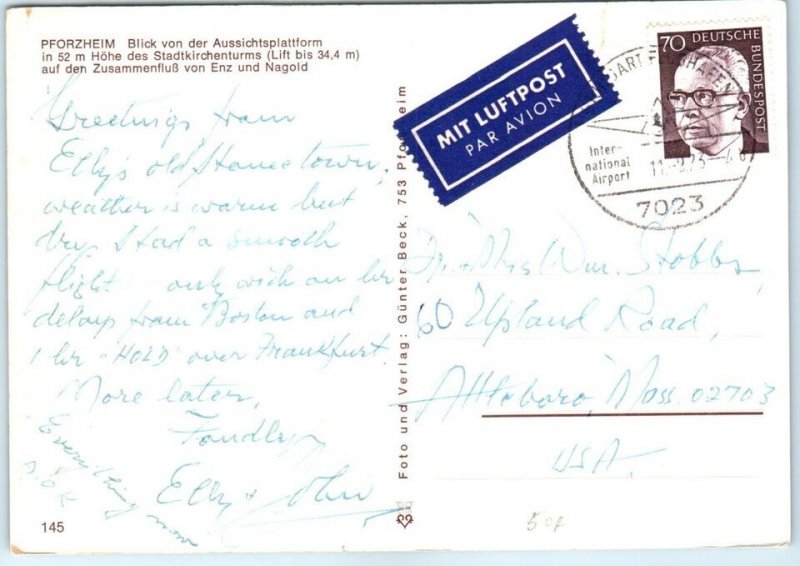 PFORZHEIM Blick von der Aussichtsplattform
in 52 m Höhe des Stadtkirchenturms (Lift bis 34,4 m)
auf den Zusammenfluß von Enz und Nagold
Greetings from
Elly's old home town,
weather is warm but
dry. Had a smooth
flight - only with an hr
delay from Boston and
1 hr "HOLD" over Frankfurt.
More later,
Fondly,
Elly + John
Everything now
is OK
145
Foto und Verlag: Günter Beck, 753 Pforzheim
MIT LUFTPOST
PAR AVION
70 DEUTSCHE
BUNDESPOST
Inter-
national
Airport
7023
Wm. Stobbs
60 Upland Road,
Attleboro, Mass. 02703
USA
50f